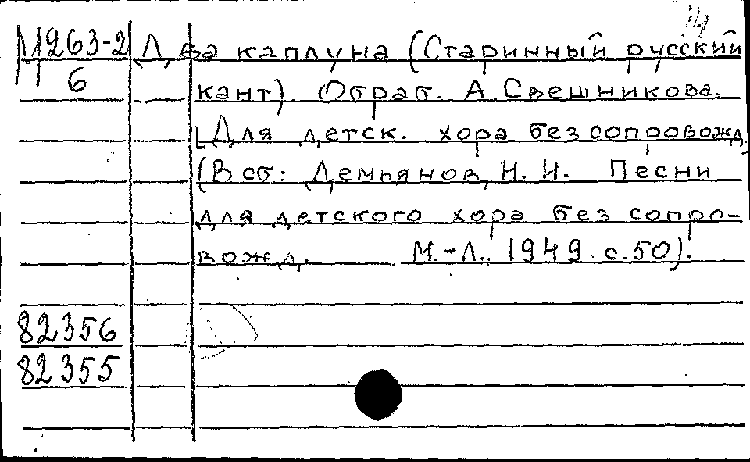 М263-2 Два каплуна (Старинный русский
6 кант). Обраб. А Свешникова.
Для детск. хора без сопровожд.
(В сб: Демьянов, Н. И. Песни
для детского хора без сопро-
вожд. М.-Л., 1949. с. 50).
82356
82355